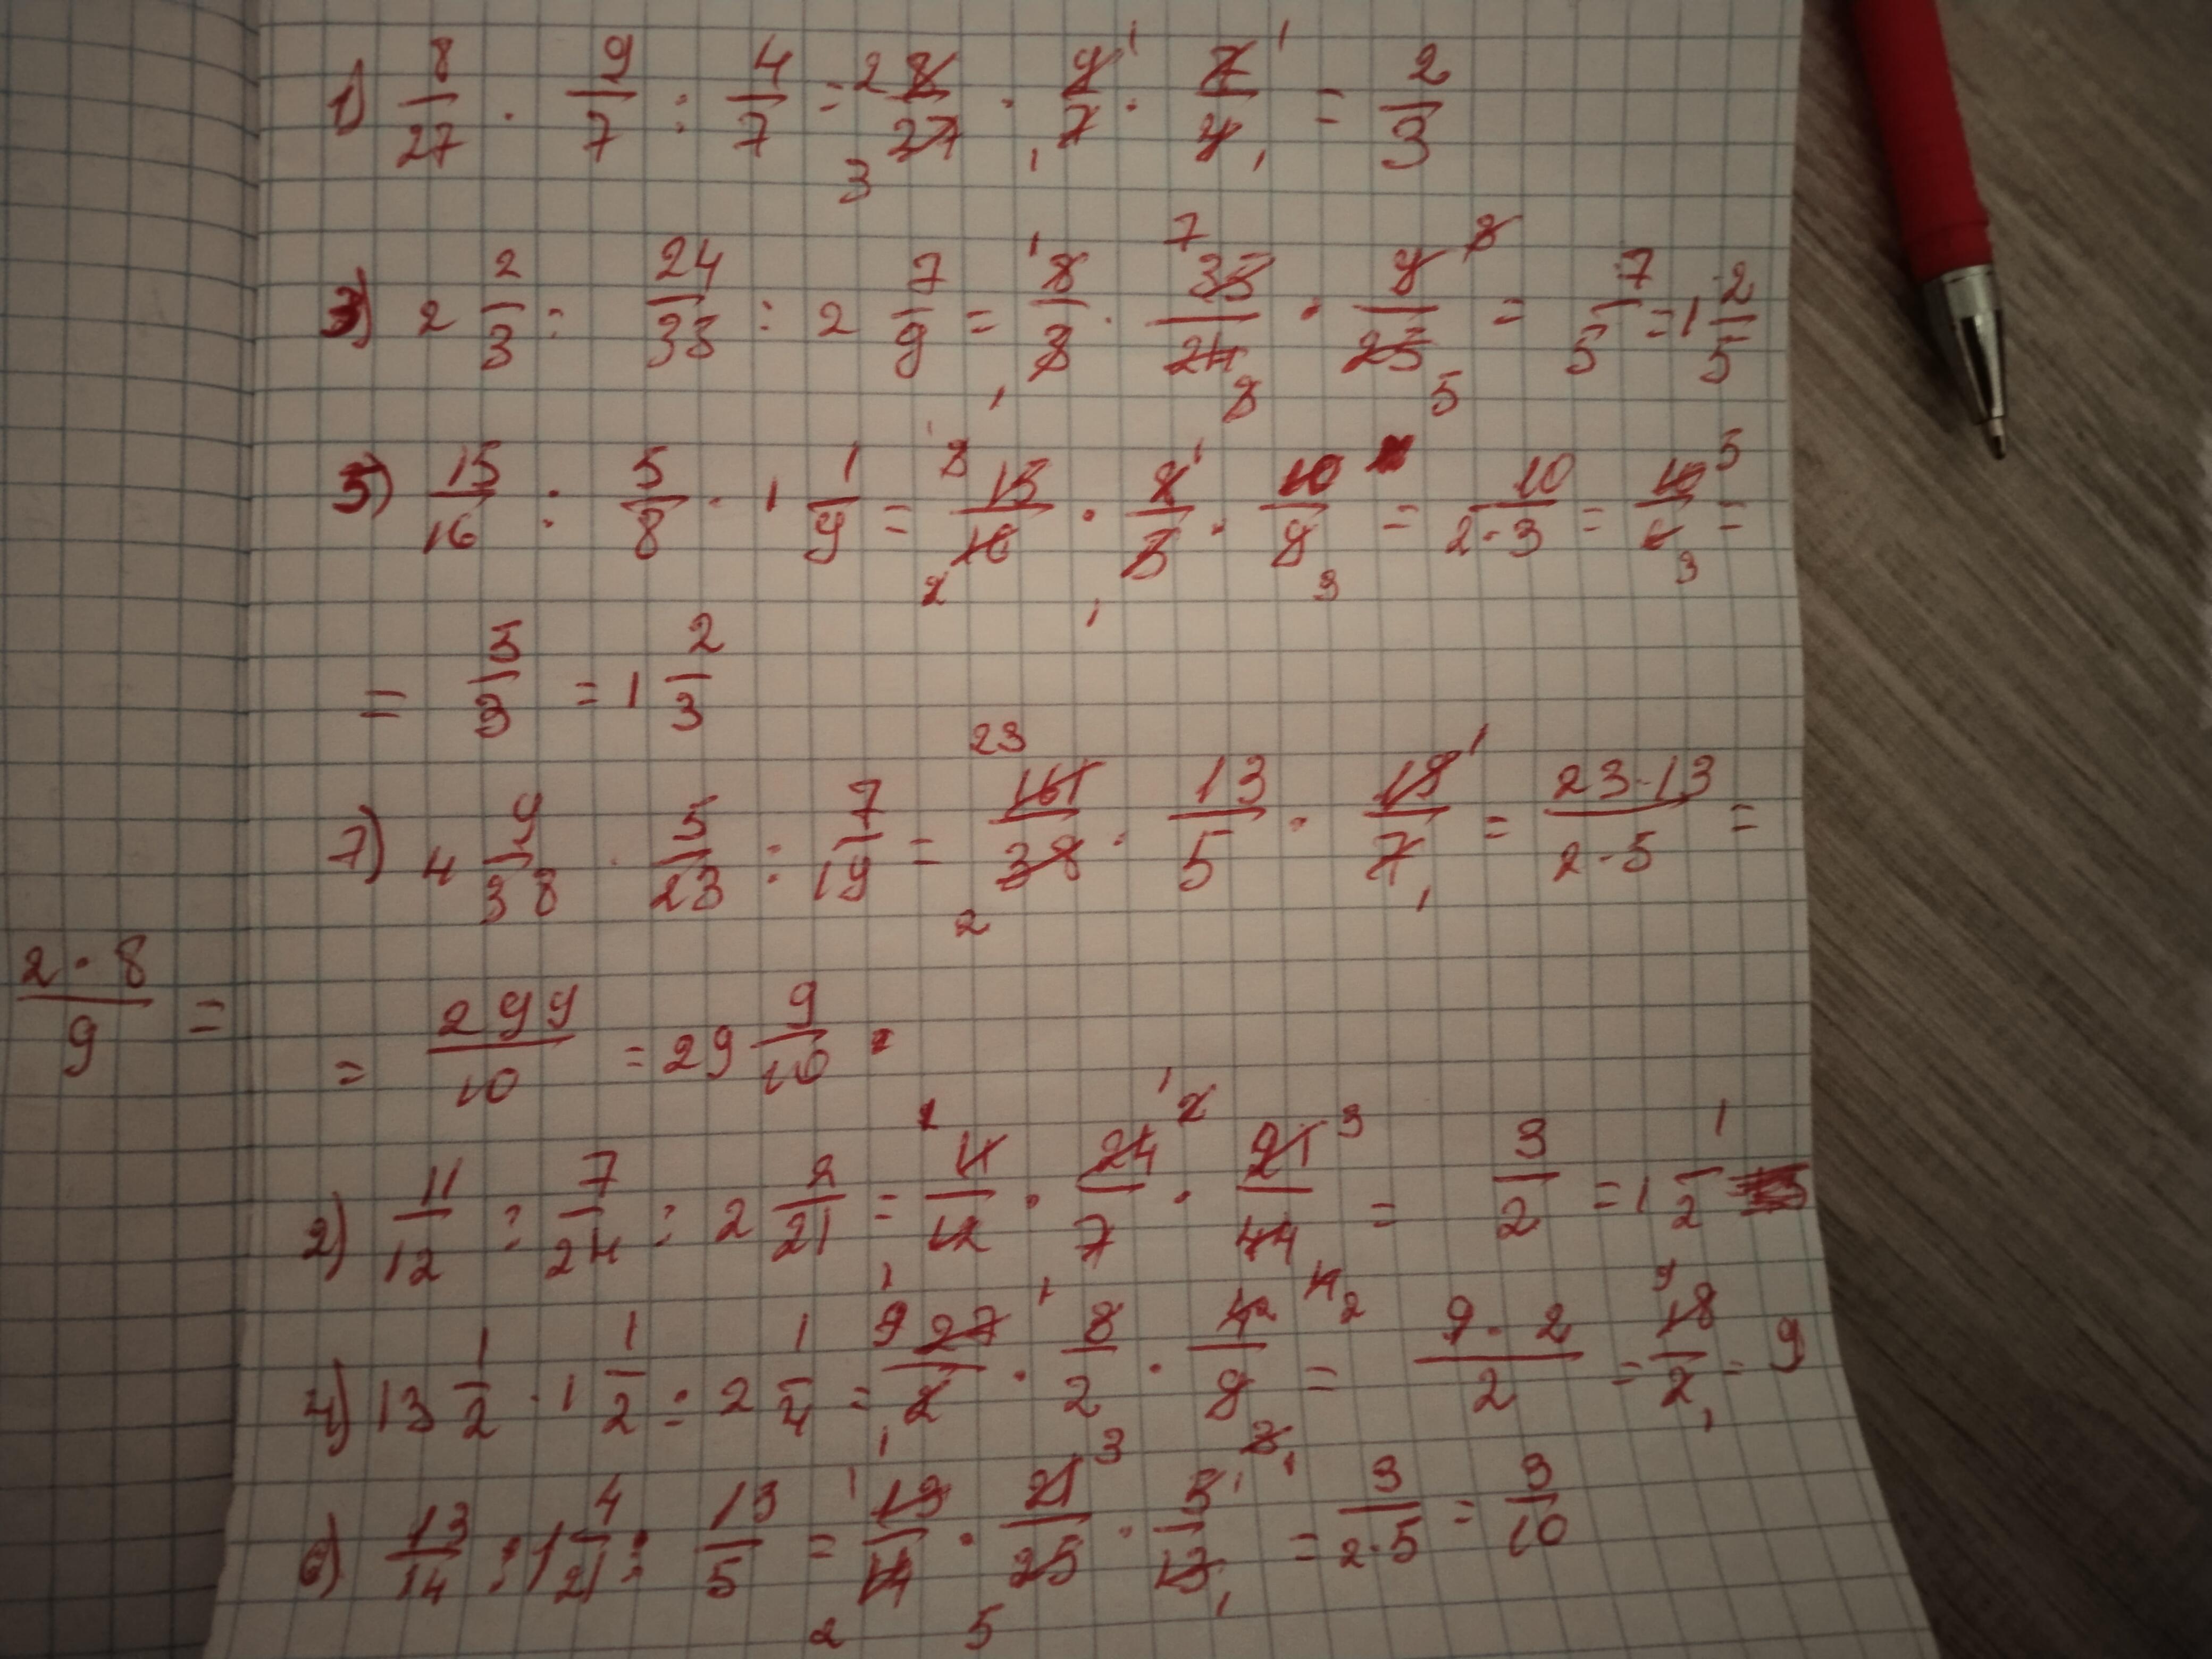 1) 8/27 · 9/7 : 4/7 = 8/27 · 9/7 · 7/4 = 2/3
3) 2 2/3 : 24/35 : 2 7/9 = 8/3 · 35/24 · 9/25 = 7/5 = 1 2/5
5) 15/16 : 5/8 · 1 1/9 = 15/16 · 8/5 · 10/9 = 10/2·3 = 10/6 =
= 5/3 = 1 2/3
7) 4 9/38 · 5/23 : 7/19 = 161/38 · 13/5 · 19/7 = 23·13/2·5 =
2·8/9 =
= 299/10 = 29 9/10
2) 11/12 : 7/24 : 2 2/21 = 11/12 · 24/7 · 21/44 = 3/2 = 1 1/2
4) 13 1/2 · 1 1/2 : 2 1/4 = 27/2 · 8/2 · 4/9 = 9·2/2 = 18/2 = 9
6) 13/14 : 1 4/21 : 13/5 = 13/14 · 21/25 · 5/13 = 3/2·5 = 3/10